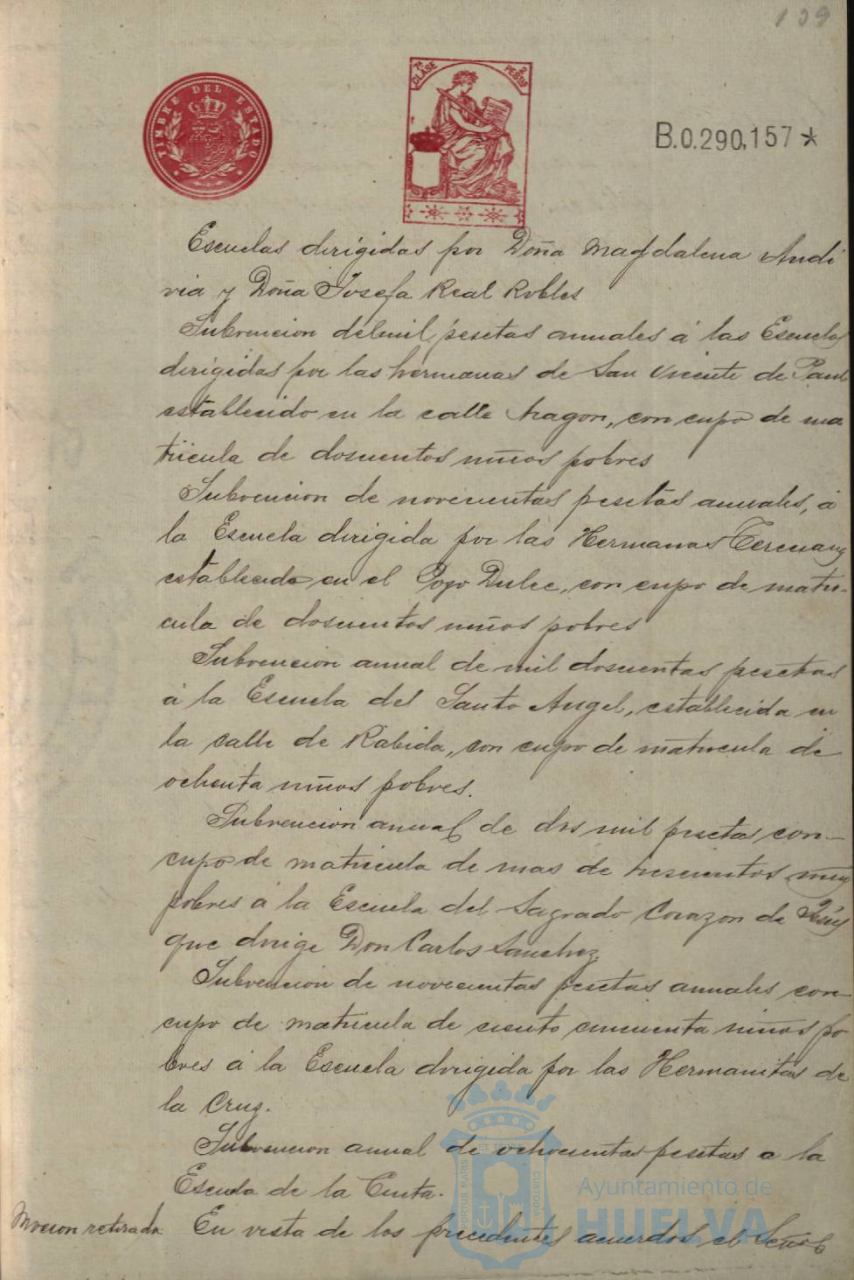 139
TIMBRE DEL ESTADO
7ª CLASE 2 PESETAS
B.0.290,157*
Escuelas dirigidas por Doña Magdalena Andi
via y Doña Josefa Real Robles
Subvencion de mil pesetas anuales á las Escuelas
dirigidas por las hermanas de San Vicente de Paul
establecido en la calle Aragon, con cupo de ma
trícula de doscientos niños pobres
Subvencion de novecientas pesetas anuales, á
la Escuela dirigida por las Hermanas Teresianas
establecida en el Pozo Dulce, con cupo de matri-
cula de doscientos niños pobres
Subvencion anual de mil doscientas pesetas
á la Escuela del Santo Angel, establecida en
la calle de Rabida, con cupo de matricula de
ochenta niños pobres.
Subvencion anual de dos mil pesetas con-
cupo de matricula de mas de trescientos niños
pobres á la Escuela del Sagrado Corazon de Jesús
que dirige Don Carlos Sanchez
Subvencion de novecientas pesetas anuales con-
cupo de matricula de ciento cincuenta niños po
bres á la Escuela dirigida por las Hermanitas de
la Cruz.
Subvencion anual de ochocientas pesetas a la
Escuela de la Cinta.
Mocion retirada En vista de los precedentes acuerdos, el Señor
Ayuntamiento de
HUELVA